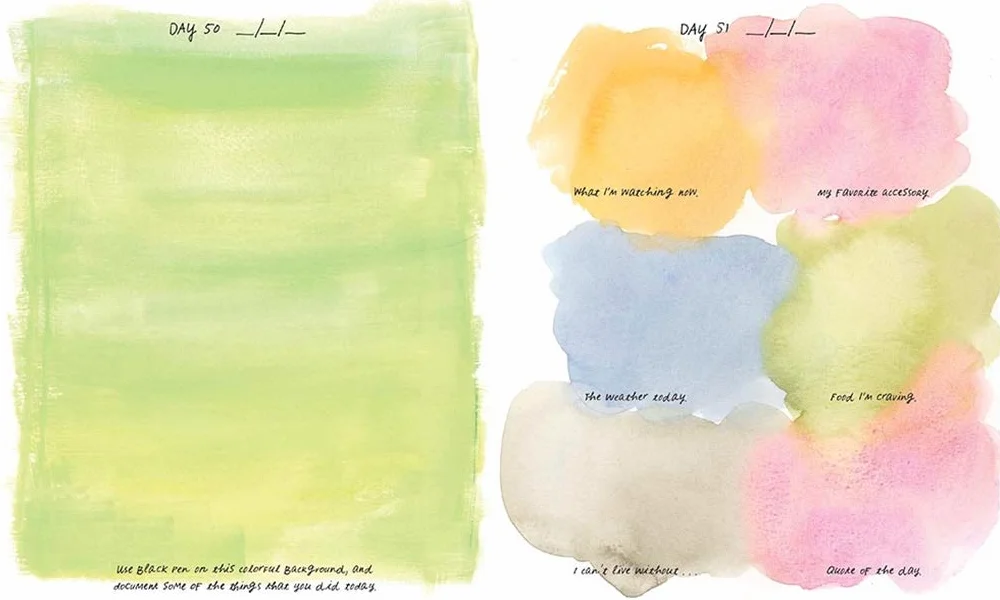 DAY 50 __/__/__
Use Black pen on this colorful Background, and
document some of the things that you did today.
DAY 51 __/__/__
What I'm watching now.
My Favorite accessory.
The weather today.
Food I'm craving.
I can't live without ...
Quote of the day.